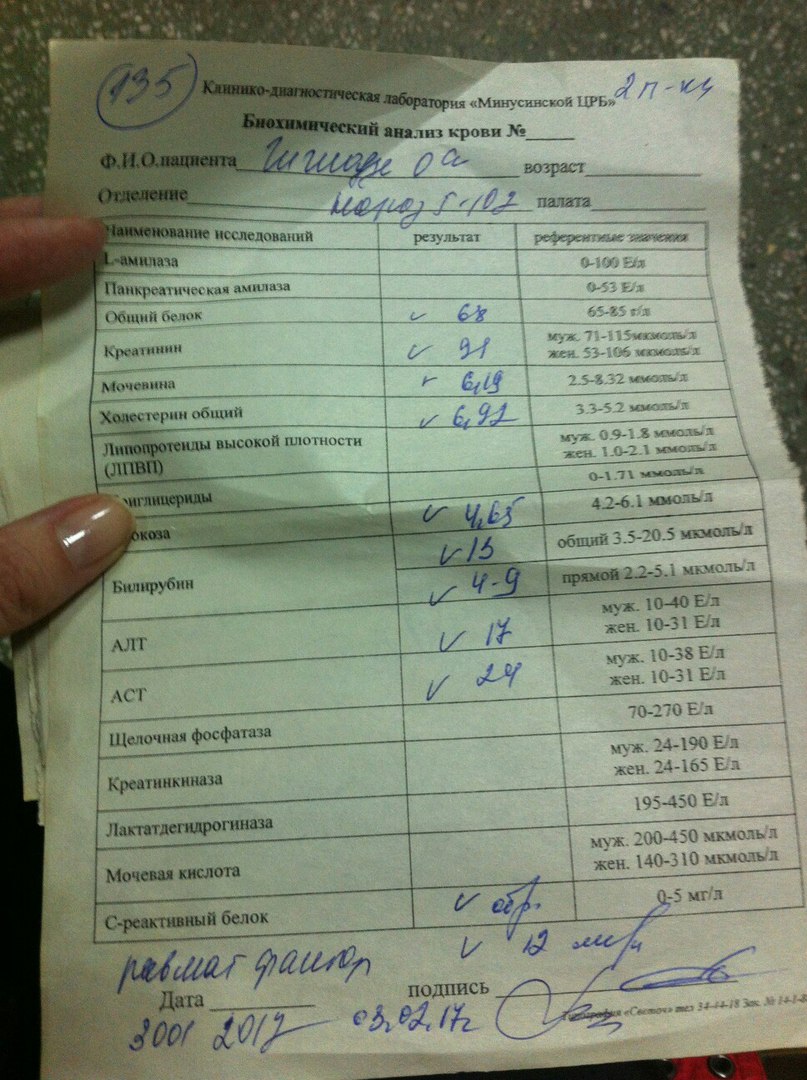 135
Клинико-диагностическая лаборатория «Минусинской ЦРБ» 2 п-ка
Биохимический анализ крови №_____
Ф.И.О.пациента ОА возраст
Отделение Мороз 5-102 палата
Наименование исследований результат референтные значения
L-амилаза 0-100 Е/л
Панкреатическая амилаза 0-53 Е/л
Общий белок 68 65-85 г/л
Креатинин 91 муж. 71-115мкмоль/л
жен. 53-106 мкмоль/л
Мочевина 6,19 2.5-8.32 ммоль/л
Холестерин общий 6,92 3.3-5.2 ммоль/л
Липопротеиды высокой плотности муж. 0.9-1.8 ммоль/л
(ЛПВП) жен. 1.0-2.1 ммоль/л
иглицериды 0-1.71 ммоль/л
коза 4,65 4.2-6.1 ммоль/л
Билирубин 13 общий 3.5-20.5 мкмоль/л
4-9 прямой 2.2-5.1 мкмоль/л
АЛТ 17 муж. 10-40 Е/л
жен. 10-31 Е/л
АСТ 24 муж. 10-38 Е/л
жен. 10-31 Е/л
Щелочная фосфатаза 70-270 Е/л
Креатинкиназа муж. 24-190 Е/л
жен. 24-165 Е/л
Лактатдегидрогиназа 195-450 Е/л
Мочевая кислота муж. 200-450 мкмоль/л
жен. 140-310 мкмоль/л
С-реактивный белок отр. 0-5 мг/л
ревмат фактор 12
Дата подпись
«Светоч» тел 34-44-18 Зак. № 14-1-8
3001 2017 03.02.17г